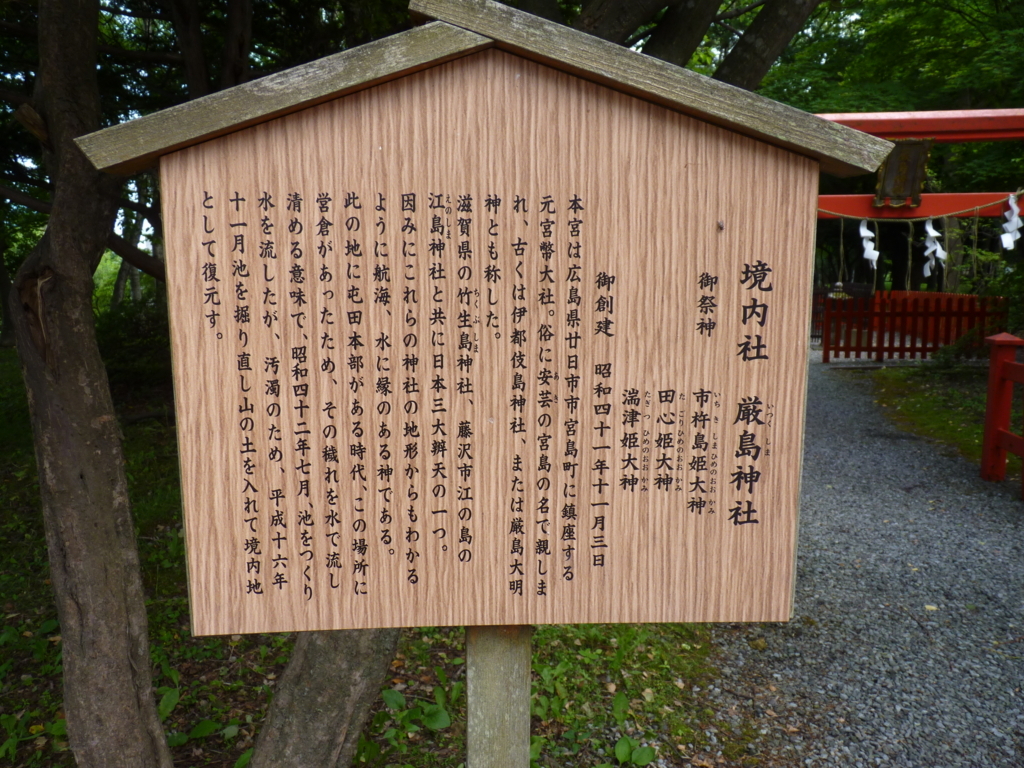 境内社 厳島神社
いつくしま
御祭神 市杵島姫大神
いちきしまひめのおおかみ
田心姫大神
たごりひめのおおかみ
湍津姫大神
たぎつひめのおおかみ
御創建 昭和四十一年十一月三日
本宮は広島県廿日市市宮島町に鎮座する
元官幣大社。俗に安芸の宮島の名で親しま
あき
れ、古くは伊都伎島神社、または厳島大明
神とも称した。
滋賀県の竹生島神社、藤沢市江の島の
ちくぶしま
江島神社と共に日本三大辨天の一つ。
えのしま
因みにこれらの神社の地形からもわかる
ように航海、水に縁のある神である。
此の地に屯田本部がある時代、この場所に
営倉があったため、その穢れを水で流し
清める意味で、昭和四十二年七月、池をつくり
水を流したが、汚濁のため、平成十六年
十一月池を掘り直し山の土を入れて境内地
として復元す。